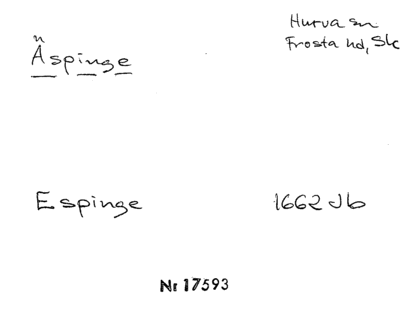 Äspinge
Hurva sn
Frosta hd, Sk
Espinge 1662 Jb
Nr 17593